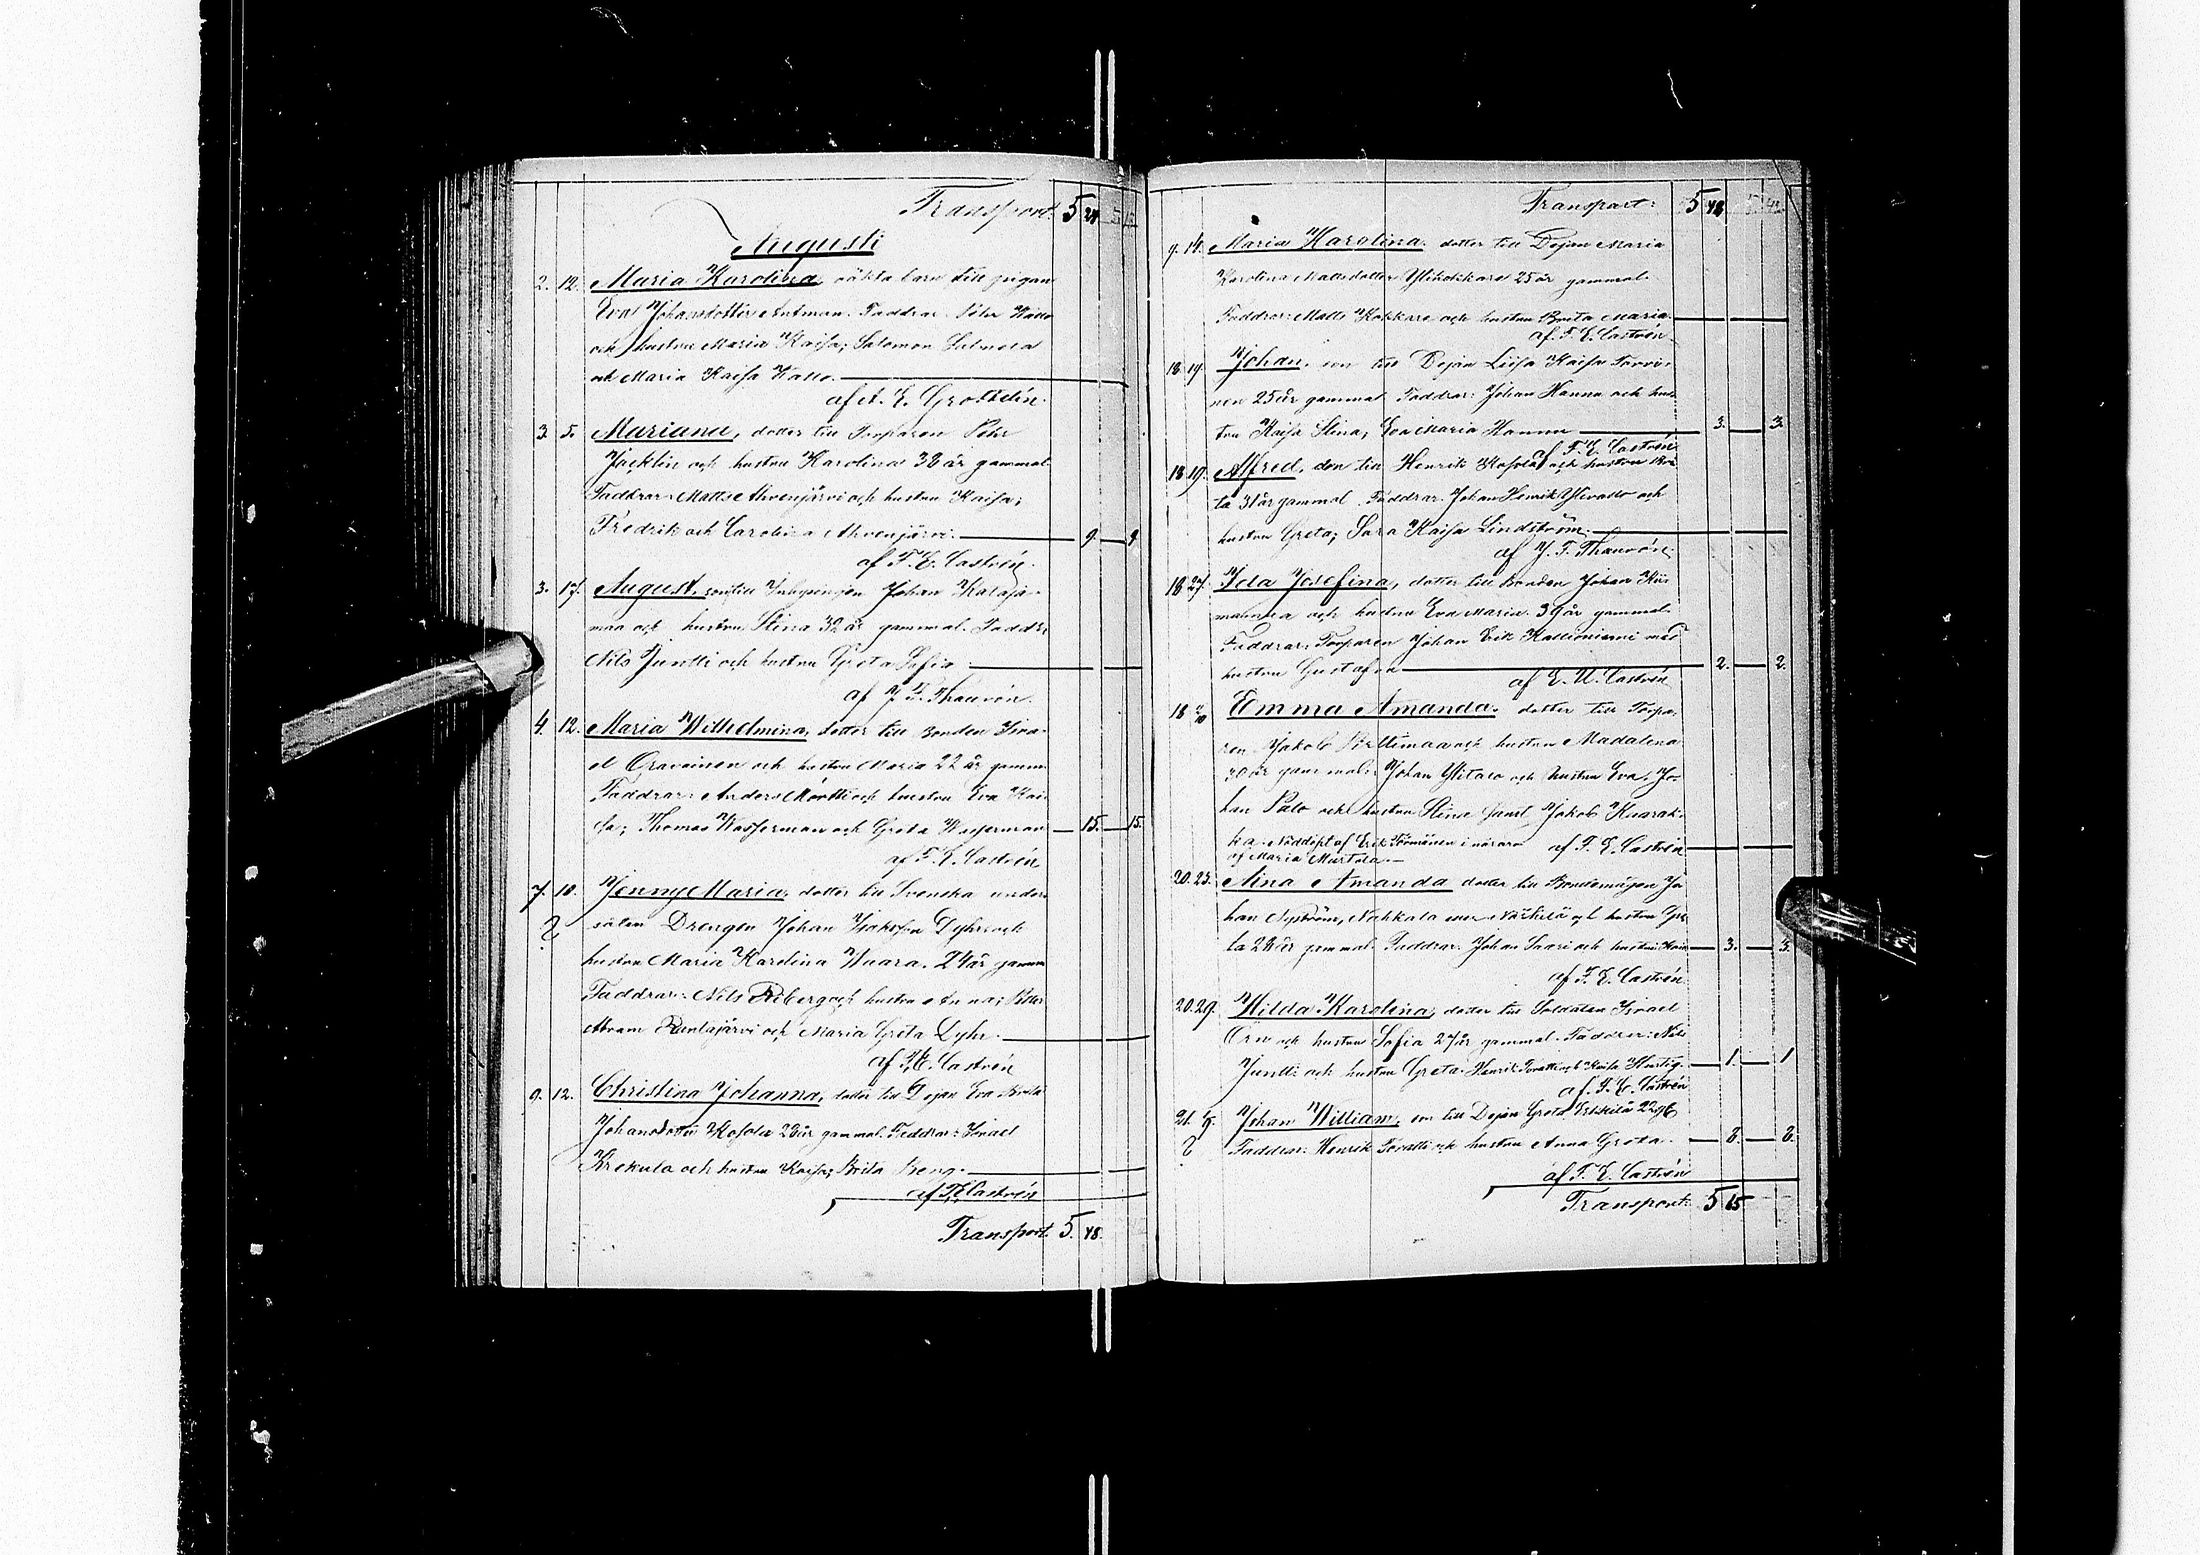 Transport: 5 24
Augusti
2. 12. Maria Karolina, oäkta barn till pigan
Eva Johansdotter Antman. Faddrar: Pehr
och hustru Maria Kaisa; Salomon
och Maria Kaisa
af A. E. Grotelin.
3. 5. Mariana, dotter till Torparen Pehr
Jacklin och hustru Karolina 38 år gammal
Faddrar: Matts Ahvenjärvi och hustru Kaisa;
Fredrik och Carolina Ahvenjärvi. 9. 9
af F. E. Castrén.
3. 17. August, son till Inhysingen Johan Kataja-
maa och hustru Stina 32 år gammal. Faddr:
Nils Juntti och hustru Greta Sofia
af J. F. Thauvón.
4. 12. Maria Wilhelmina, dotter till Bonden Isra-
el Oravainen och hustru Maria 22 år gamm.
Faddrar: Anders och hustru Eva Kai-
sa; Thomas Wasserman och Greta Wasserman 15. 15.
af F. E. Castrén
7. 10. Jenny Maria, dotter till Svenska under-
såten Drengen Johan Isaksson Dyhr och
hustru Maria Karolina Waara. 24 år gamm
Faddrar: Nils och hustru Anna; Petter
Abram Rentajärvi och Maria Greta Dyhr.
af F. E. Castrén
9. 12. Christina Johanna, dotter till Dejan Eva Brita
Johansdotter 28 år gammal. Faddrar: Israel
Krekula och hustru Kaisa; Brita Beng.
af F. E. Castrén
Transport 5. 48.
Transport: 5 48
9. 14. Maria Karolina, dotter till Dejan Maria
Karolina Mattsdotter Ylikokkare 25 år gammal.
Faddrar: Matts Kokkare och hustru Brita Maria.
af F. E. Castrén
18 19. Johan, son till Dejan Liisa Kaisa Torvi-
nen 25 år gammal Faddrar: Johan Hannu och hus-
tru Kaisa Stina; Eva Maria Hannu 3. 3.
af F. E. Castrén
18 19. Alfred, son till Henrik och hustru Bri-
ta 31 år gammal. Faddrar: Johan Henrik och
hustru Greta; Sara Kaisa Lindström.
af J. F. Thauvón.
18 27. Ida Josefina, dotter till Bonden Johan Kii-
manma och hustru Eva Maria 39 år gammal.
Faddrar: Torparen Johan Erik Kallioniemi med
hustru Gustafva 2. 2.
af E. U. Castrén
18 Emma Amanda, dotter till Torpa-
ren Jakob Perttimaa och hustru Madalena
30 år gammal: Johan Ylitaro och hustru Eva; Jo-
han Palo och hustru Stina samt Jakob Kuarak-
ka. Nöddöpt af Erik Törmänen i närvaro af F. E. Castrén
af Maria Murtola.
20. 25. Aina Amanda dotter till Bondemågen Jo-
han Nyström, Nahkala och hustru Gre-
ta 28 år gammal. Faddrar: Johan Saari och hustru 3. 3.
af F. E. Castrén.
20. 29. Hilda Karolina, dotter till Soldaten Israel
Örn och hustru Sofia 27 år gammal. Faddrar: Nils
Juntti och hustru Greta. Henrik och Kaisa 1. 1
af F. E. Castrén
21. 9. Johan William, son till Dejan Greta 22
Faddrar: Henrik och hustru Anna Greta. 8. 8.
af F. E. Castrén
Transport: 5 65